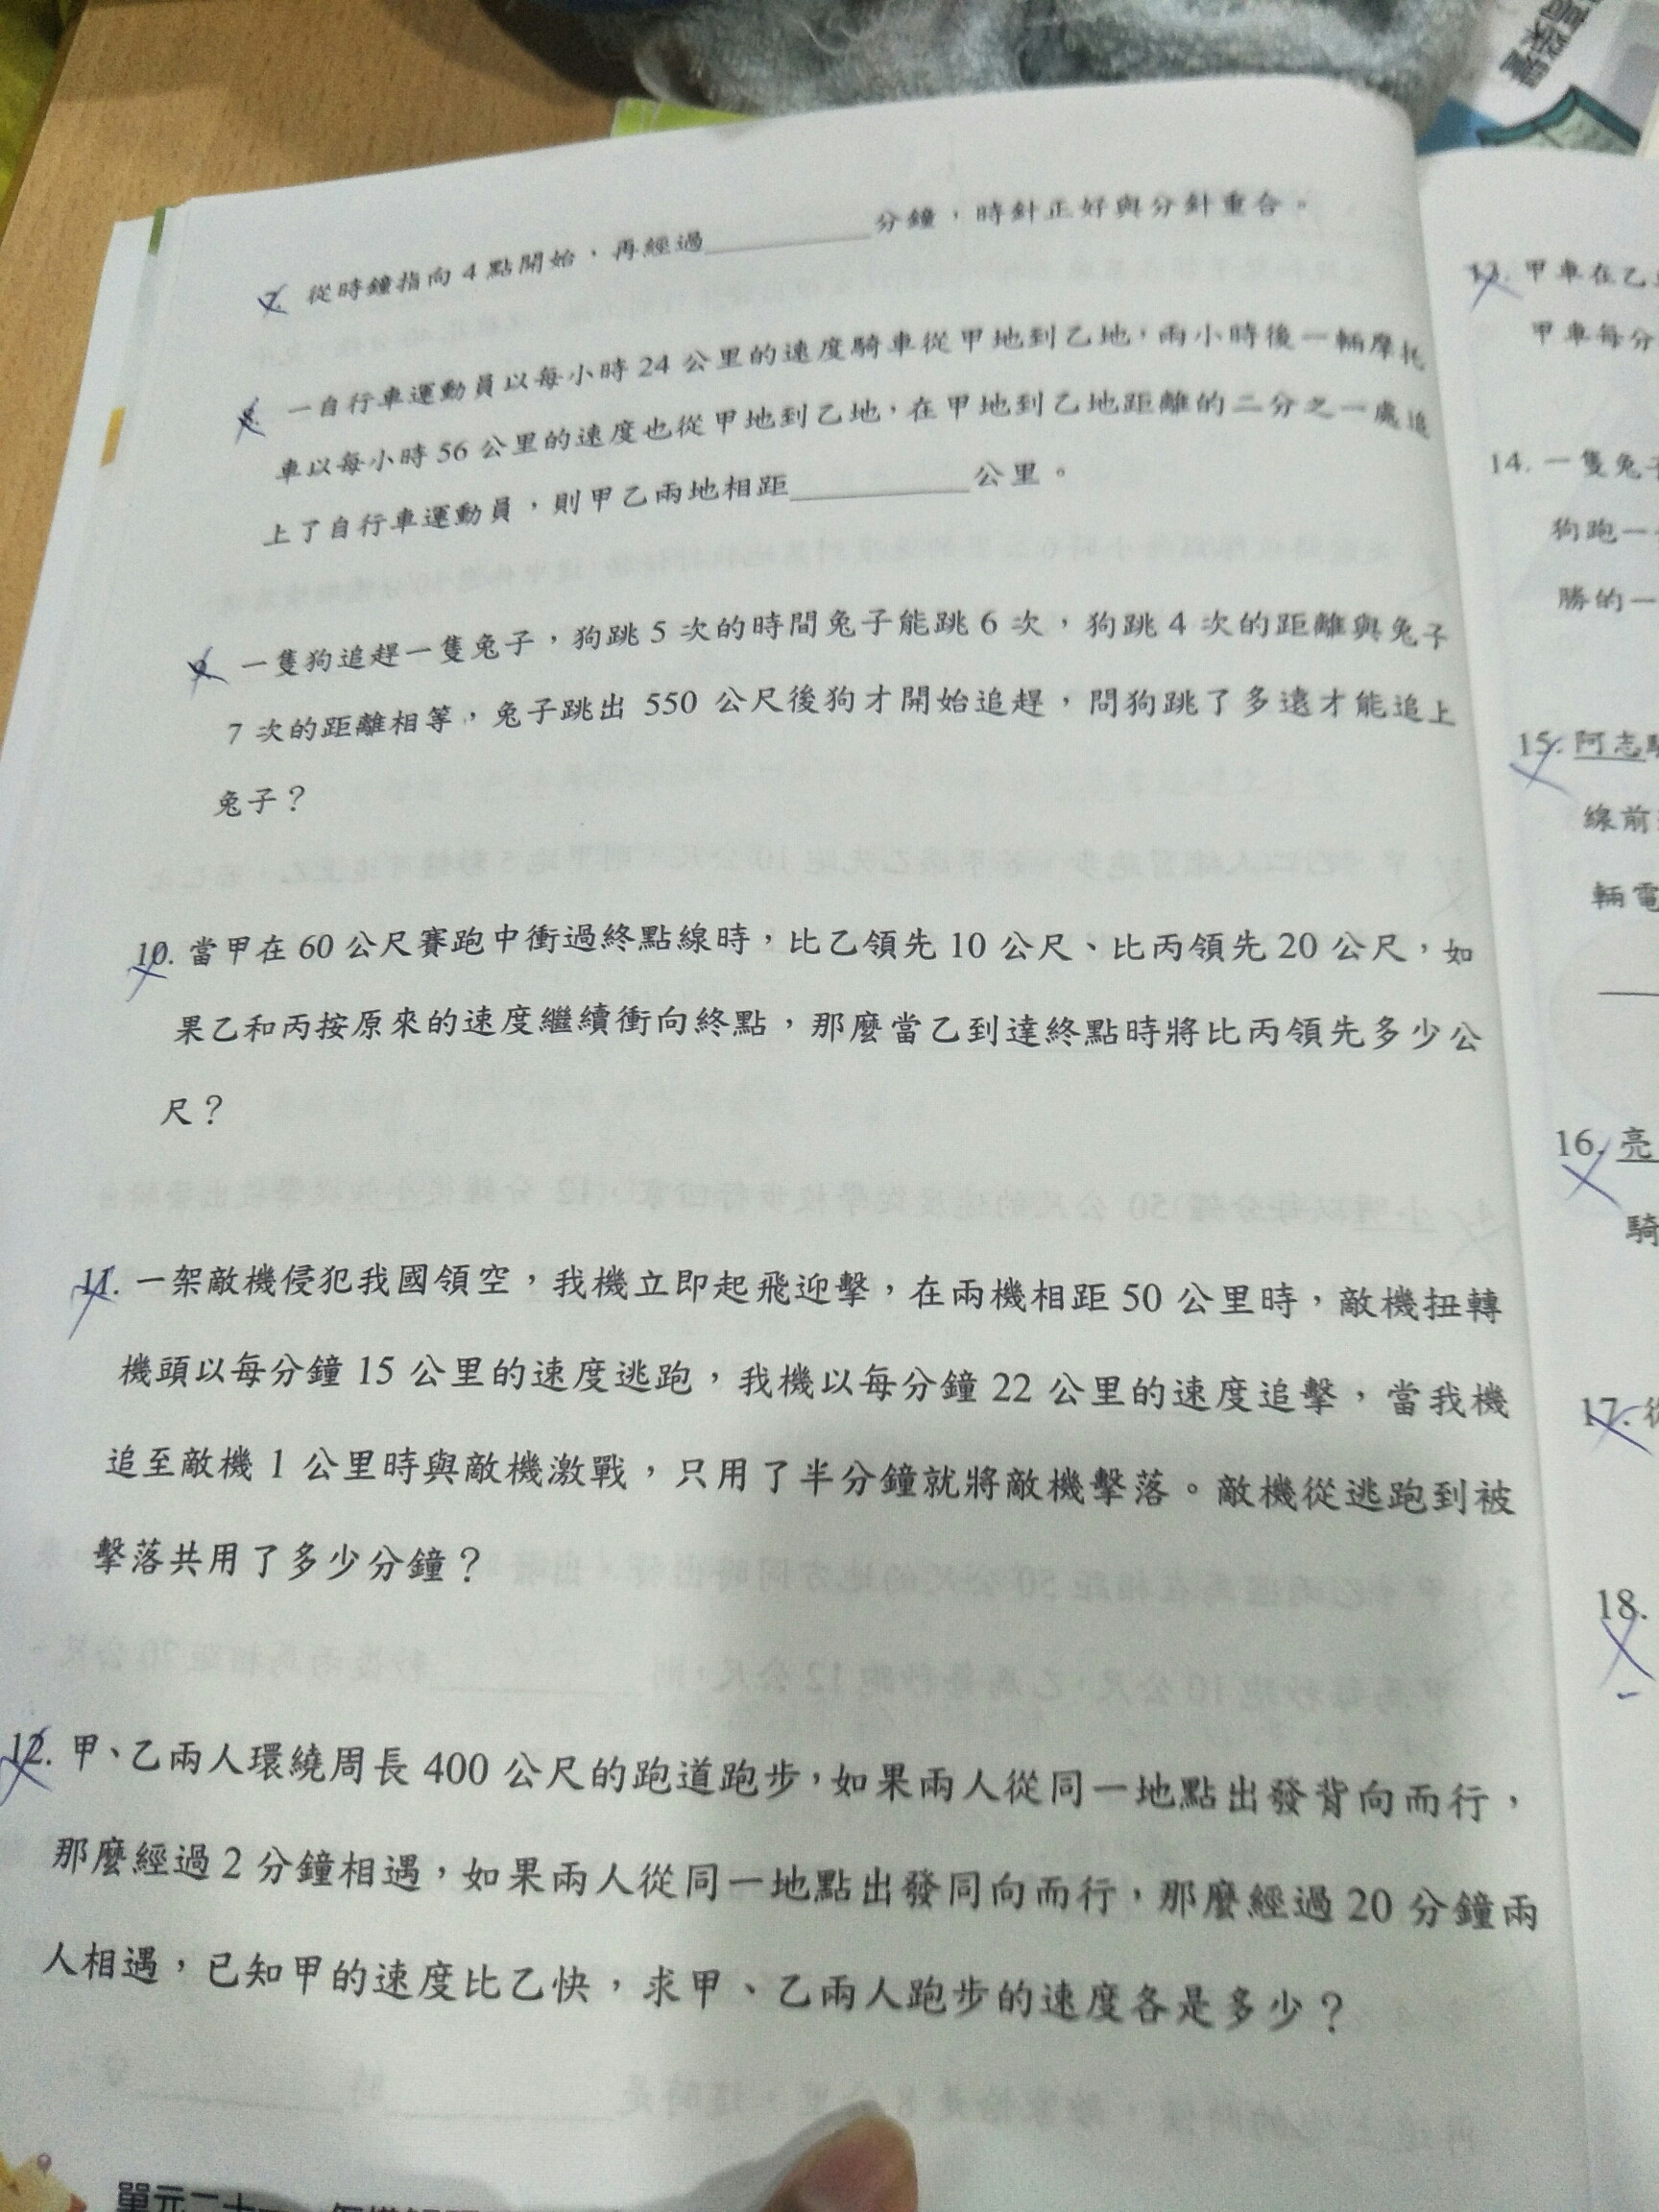 7. 從時鐘指向 4 點開始，再經過＿＿＿＿＿分鐘，時針正好與分針重合。
8. 一自行車運動員以每小時 24 公里的速度騎車從甲地到乙地，兩小時後一輛摩托
車以每小時 56 公里的速度也從甲地到乙地，在甲地到乙地距離的二分之一處追
上了自行車運動員，則甲乙兩地相距＿＿＿＿＿公里。
9. 一隻狗追趕一隻兔子，狗跳 5 次的時間兔子能跳 6 次，狗跳 4 次的距離與兔子
7 次的距離相等，兔子跳出 550 公尺後狗才開始追趕，問狗跳了多遠才能追上
兔子？
10. 當甲在 60 公尺賽跑中衝過終點線時，比乙領先 10 公尺、比丙領先 20 公尺，如
果乙和丙按原來的速度繼續衝向終點，那麼當乙到達終點時將比丙領先多少公
尺？
11. 一架敵機侵犯我國領空，我機立即起飛迎擊，在兩機相距 50 公里時，敵機扭轉
機頭以每分鐘 15 公里的速度逃跑，我機以每分鐘 22 公里的速度追擊，當我機
追至敵機 1 公里時與敵機激戰，只用了半分鐘就將敵機擊落。敵機從逃跑到被
擊落共用了多少分鐘？
12. 甲、乙兩人環繞周長 400 公尺的跑道跑步，如果兩人從同一地點出發背向而行，
那麼經過 2 分鐘相遇，如果兩人從同一地點出發同向而行，那麼經過 20 分鐘兩
人相遇，已知甲的速度比乙快，求甲、乙兩人跑步的速度各是多少？
單元二十一
13. 甲車在乙
甲車每分
14. 一隻兔子
狗跑一
勝的一
15. 阿志騎
線前
輛電
16. 亮
騎
17. 從
18.